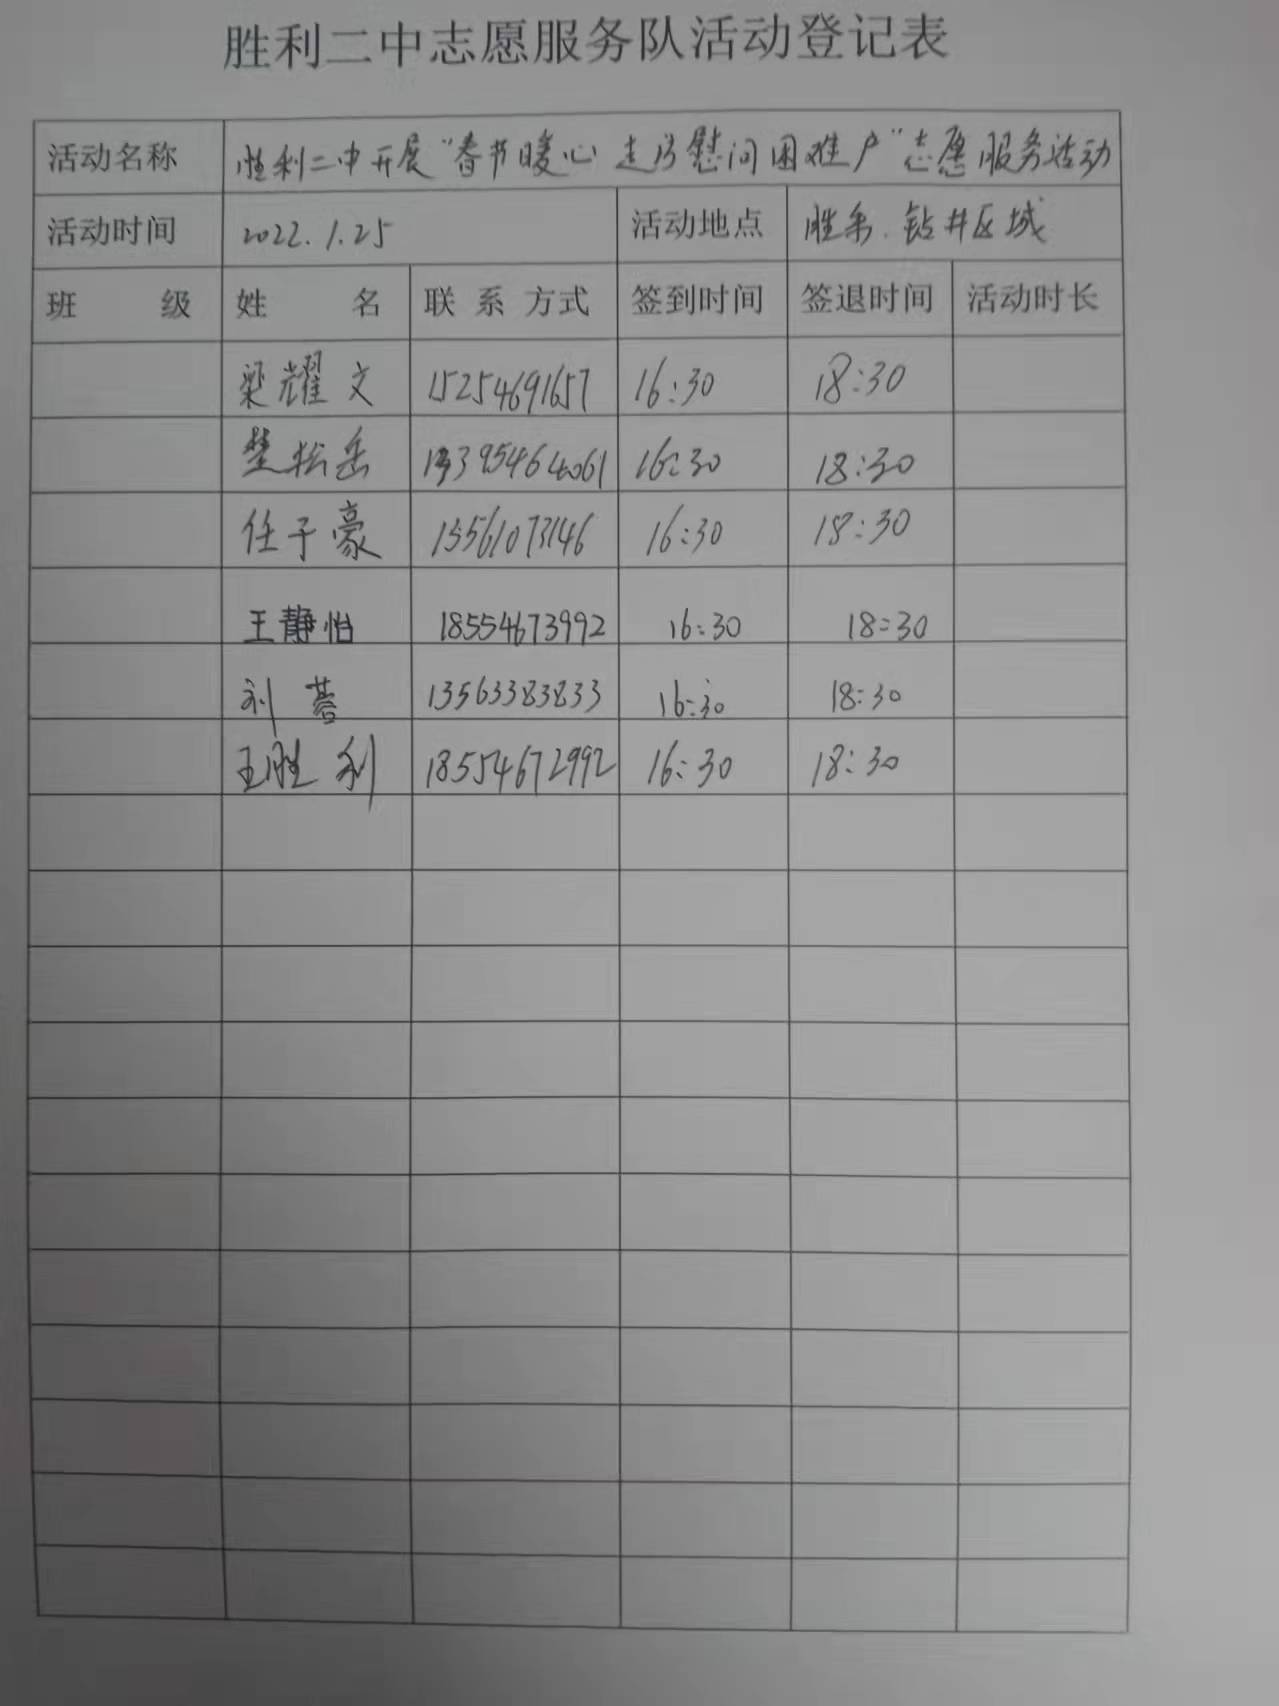 胜利二中志愿服务队活动登记表
活动名称 胜利二中开展“春节暖心 走访慰问困难户”志愿服务活动
活动时间 2022.1.25 活动地点 胜采.钻井区域
班 级 姓 名 联系方式 签到时间 签退时间 活动时长
梁耀文 15254691657 16:30 18:30
楚松岳 16:30 18:30
任于豪 13561073146 16:30 18:30
王静怡 18554673992 16:30 18:30
刘 13563383833 16:30 18:30
王胜利 18554672992 16:30 18:30